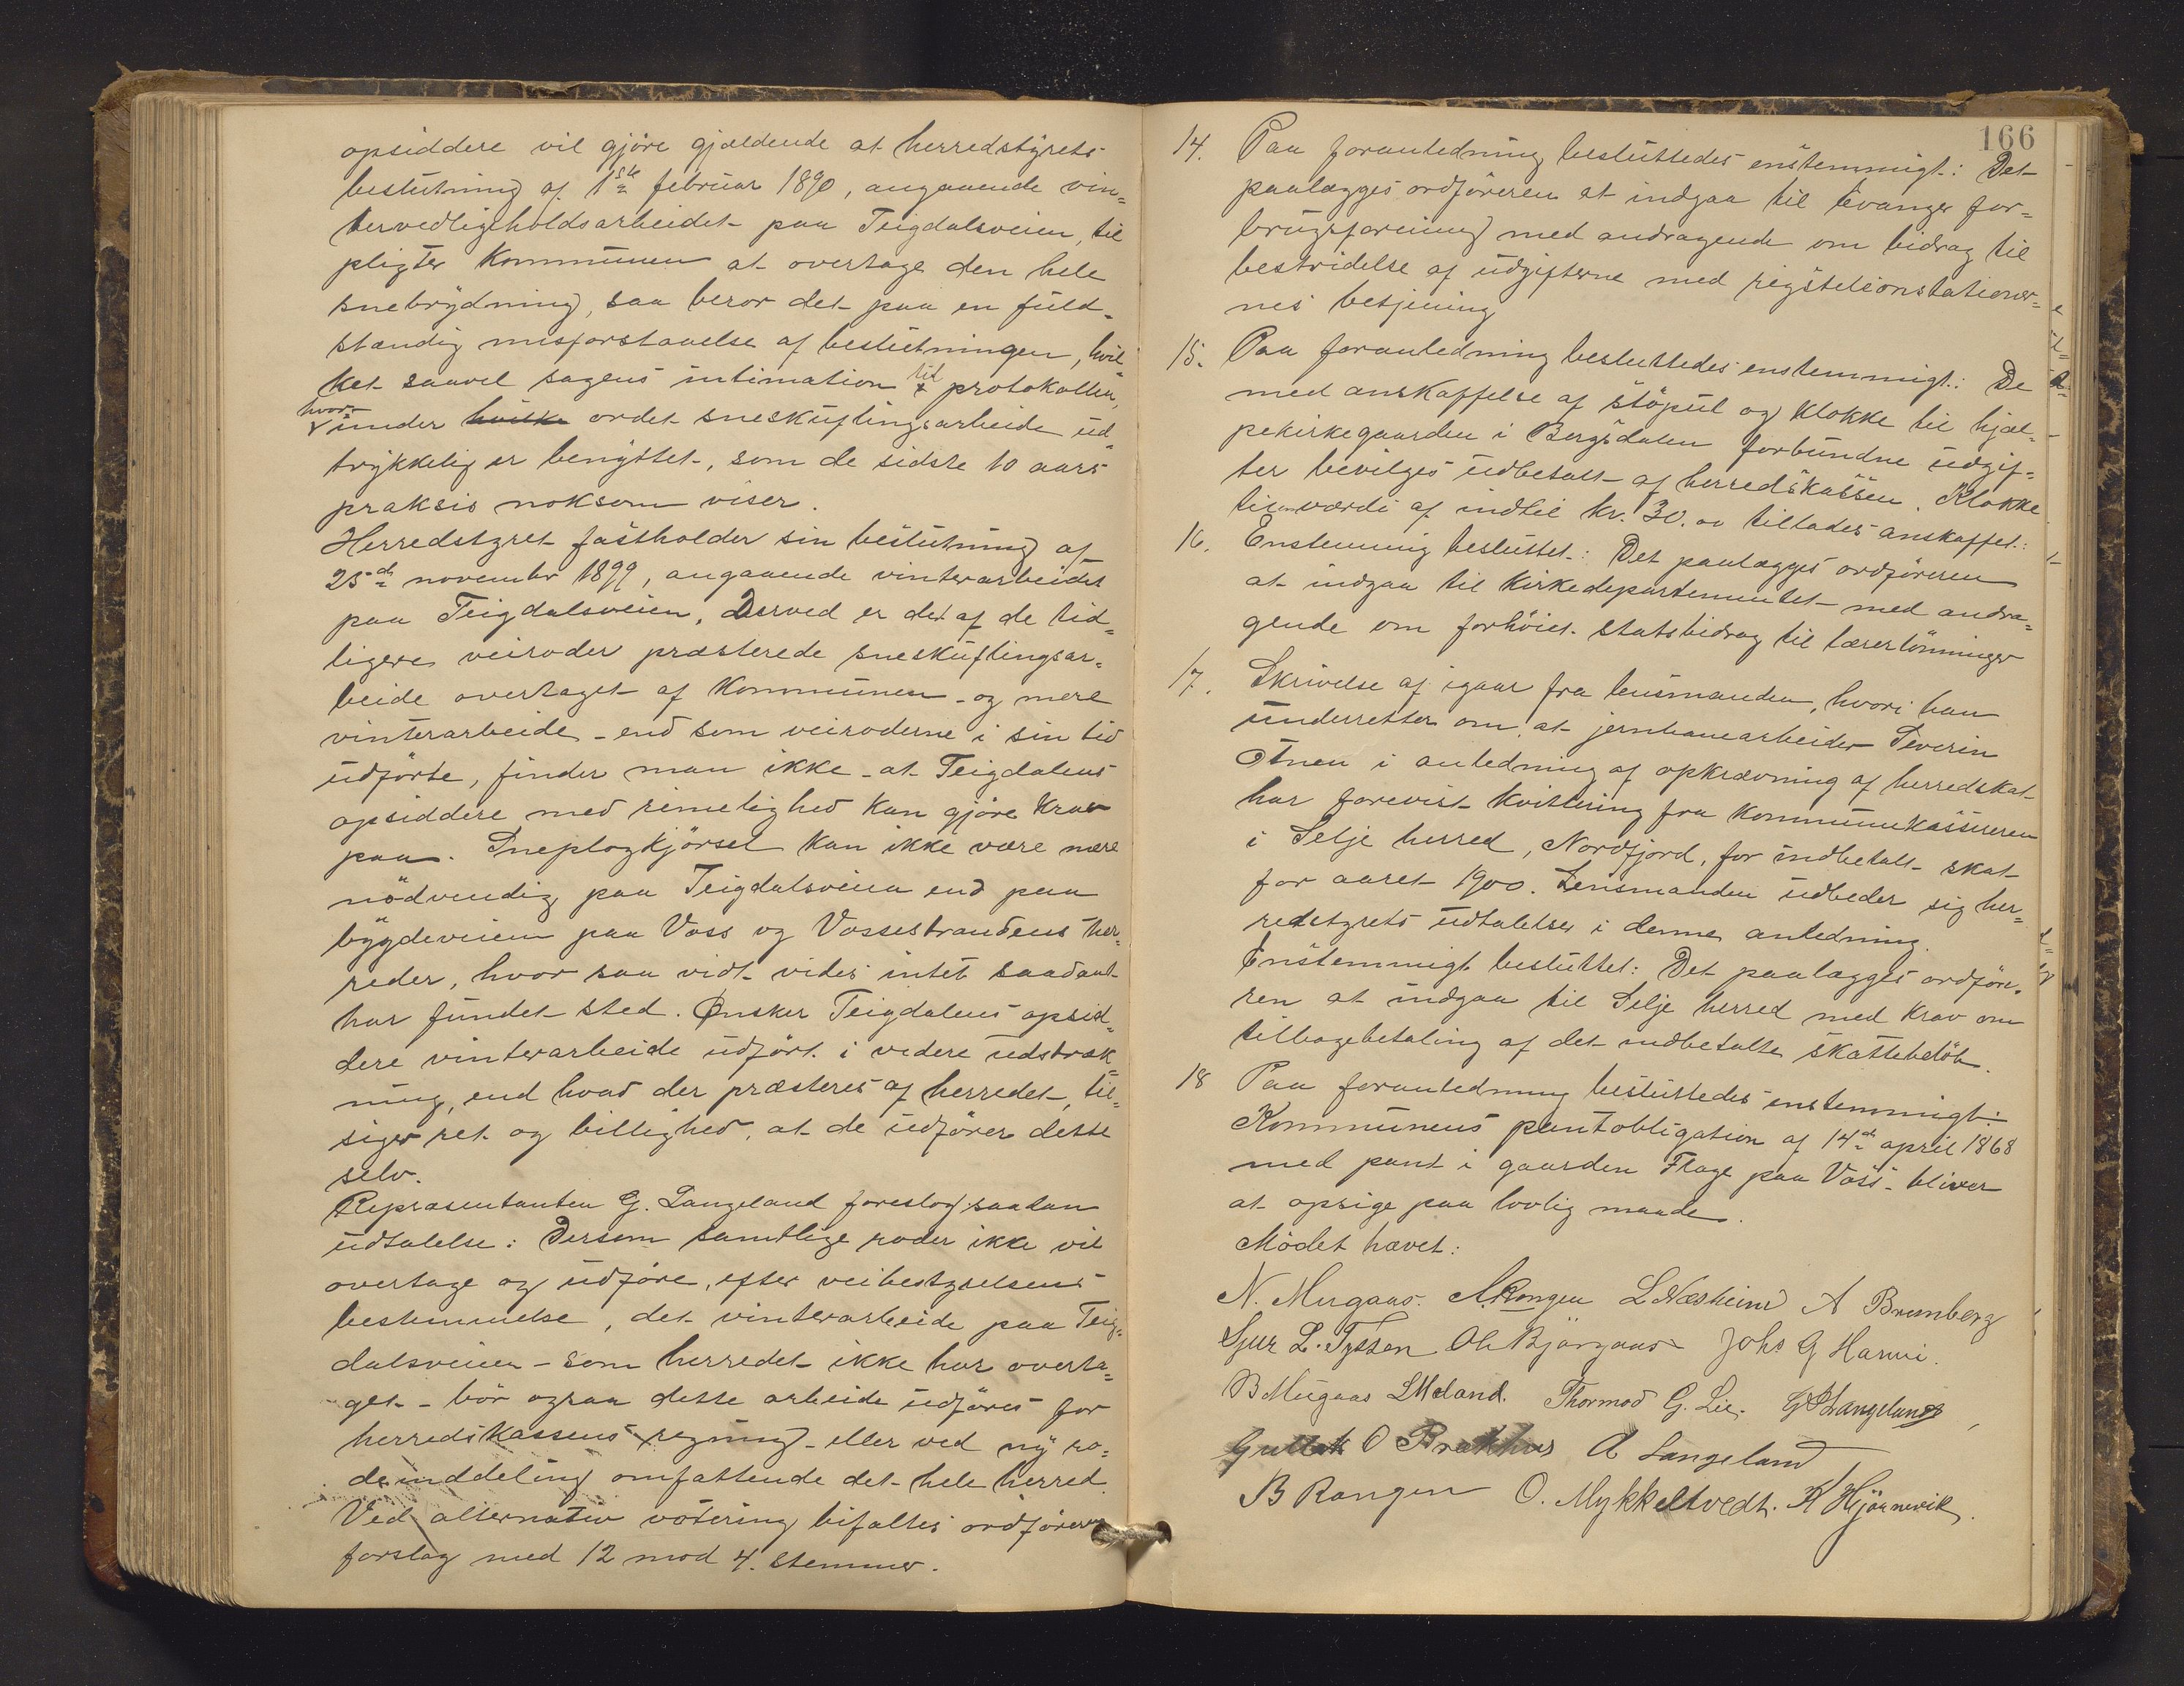 opsiddere vil gjöre gjældende at herredstyrets
beslutning af 1ste februar 1890, angaaende vin=
tervedligeholdsarbeidet paa Teigdalsveien, til
pligter kommunen at overtage den hele
snebrydning, saa beror det paa en fuld=
stændig misforstaaelse af beslutningen, hvil=
ket saavel sagens intimation til protokollen,
hvorunder hvilke ordet sneskuflingsarbeide ud
trykkelig er benyttet, som de sidste 10 aars
praksis noksom viser.
Herredstyret fastholder sin beslutning af
25de novembr 1899, angaaende vinterarbeidet
paa Teigdalsveien, Derved er det af de tid=
ligere veiroder præsterede sneskuflingsar=
beide overtaget af kommunen - og mere
vinterarbeide - end som veiroderne i sin tid
udförte, finder man ikke - at Teigdalens
opsiddere med rimelighed kan gjöre krav
paa. Sneplogkjörsel kan ikke være mere
nödvendig paa Teigdalsveien end paa
bygdeveien paa Voss og Vossestrandens her=
reder, hvor saa vidt vides intet saadant
har fundet sted. Ønsker Teigdalens opsid=
dere vinterarbeide udfört i videre udstræk
ning, end hvad der præsteres af herredet, til=
siger ret og billighed, at de udförer dette
selv.
Repræsentanten G. Langeland foreslog saadan
udtalelse: Dersom samtlige roder ikke vil
overtage og udföre, efter veibestyrelsens
bestemmelse, det vinterarbeide paa Teig=
dalsveien - som herredet ikke har overta=
get - bör ogsaa dette arbeide udföres for
herredskassens regning - eller ved ny ro=
deinddeling omfattende det hele herred.
Ved alternativ votering bifaltes ordförerens
forslag med 12 mod 4. stemmer.
166
14. Paa foranledning besluttedes enstemmigt: Det
paalægges ordföreren at indgaa til Evanger for=
brugsforening med andragende om bidrag til
bestridelse af udgifterne med rigstelefonstationer=
nes betjening
15. Paa foranledning besluttedes enstemmigt: De
med anskaffelse af stöpul og klokke til hjæl=
pekirkegaarden i Bergsdalen forbundne udgif=
ter bevilges udbetalt af herredskassen. Klokke
til en værdi af indtil kr. 30.00 tillades anskaffet.
16. Enstemmig besluttet: Det paalægges ordföreren
at indgaa til Kirkedepartementet med andra=
gende om forhöiet statsbidrag til lærerlönninger
17. Skrivelse af igaar fra lensmanden, hvori han
underretter om, at jernbanearbeider Severin
Otnen i anledning af opkrævning af herredskat
har forevist kvittering fra kommunekassereren
i Selje herred, Nordfjord, for indbetalt skat
for aaret 1900. Lensmanden udbeder sig her=
redstyrets udtalelser i denne anledning.
Enstemmigt besluttet: Det paalægges ordföre.
ren at indgaa til Selje herred med krav om
tilbagebetaling af det indbetalte skattebelöb.
18 Paa foranledning besluttedes enstemmigt:
Kommunens pantobligation af 14de april 1868
med pant i gaarden Flage paa Voss - bliver
at opsige paa lovlig maade.
Mödet hævet:
N. Mugaas. A. Rongen L Næsheim A Brunberg
Sjur L. Tyssen Ol Bjørgaas Johs G Harvei.
B Mugaas L Meland. Thormod G. Lie. G Langeland
Gullak O Brækhus A Langeland
B Rongen O. Mykkeltvedt. K Hjørnevik.